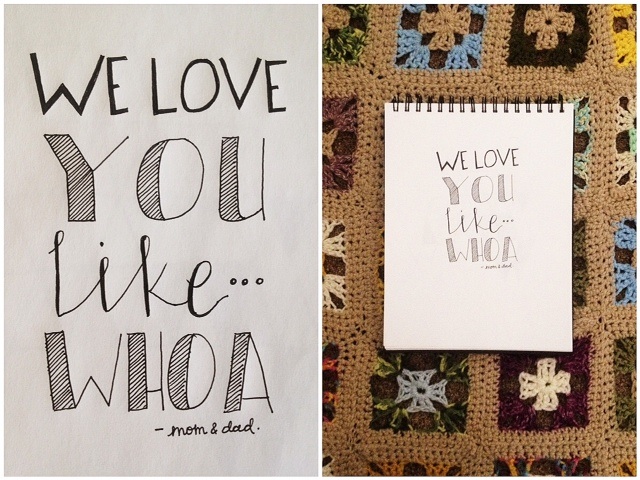 WE LOVE
YOU
like...
WHOA
- mom & dad.
WE LOVE
YOU
like...
WHOA
- mom & dad